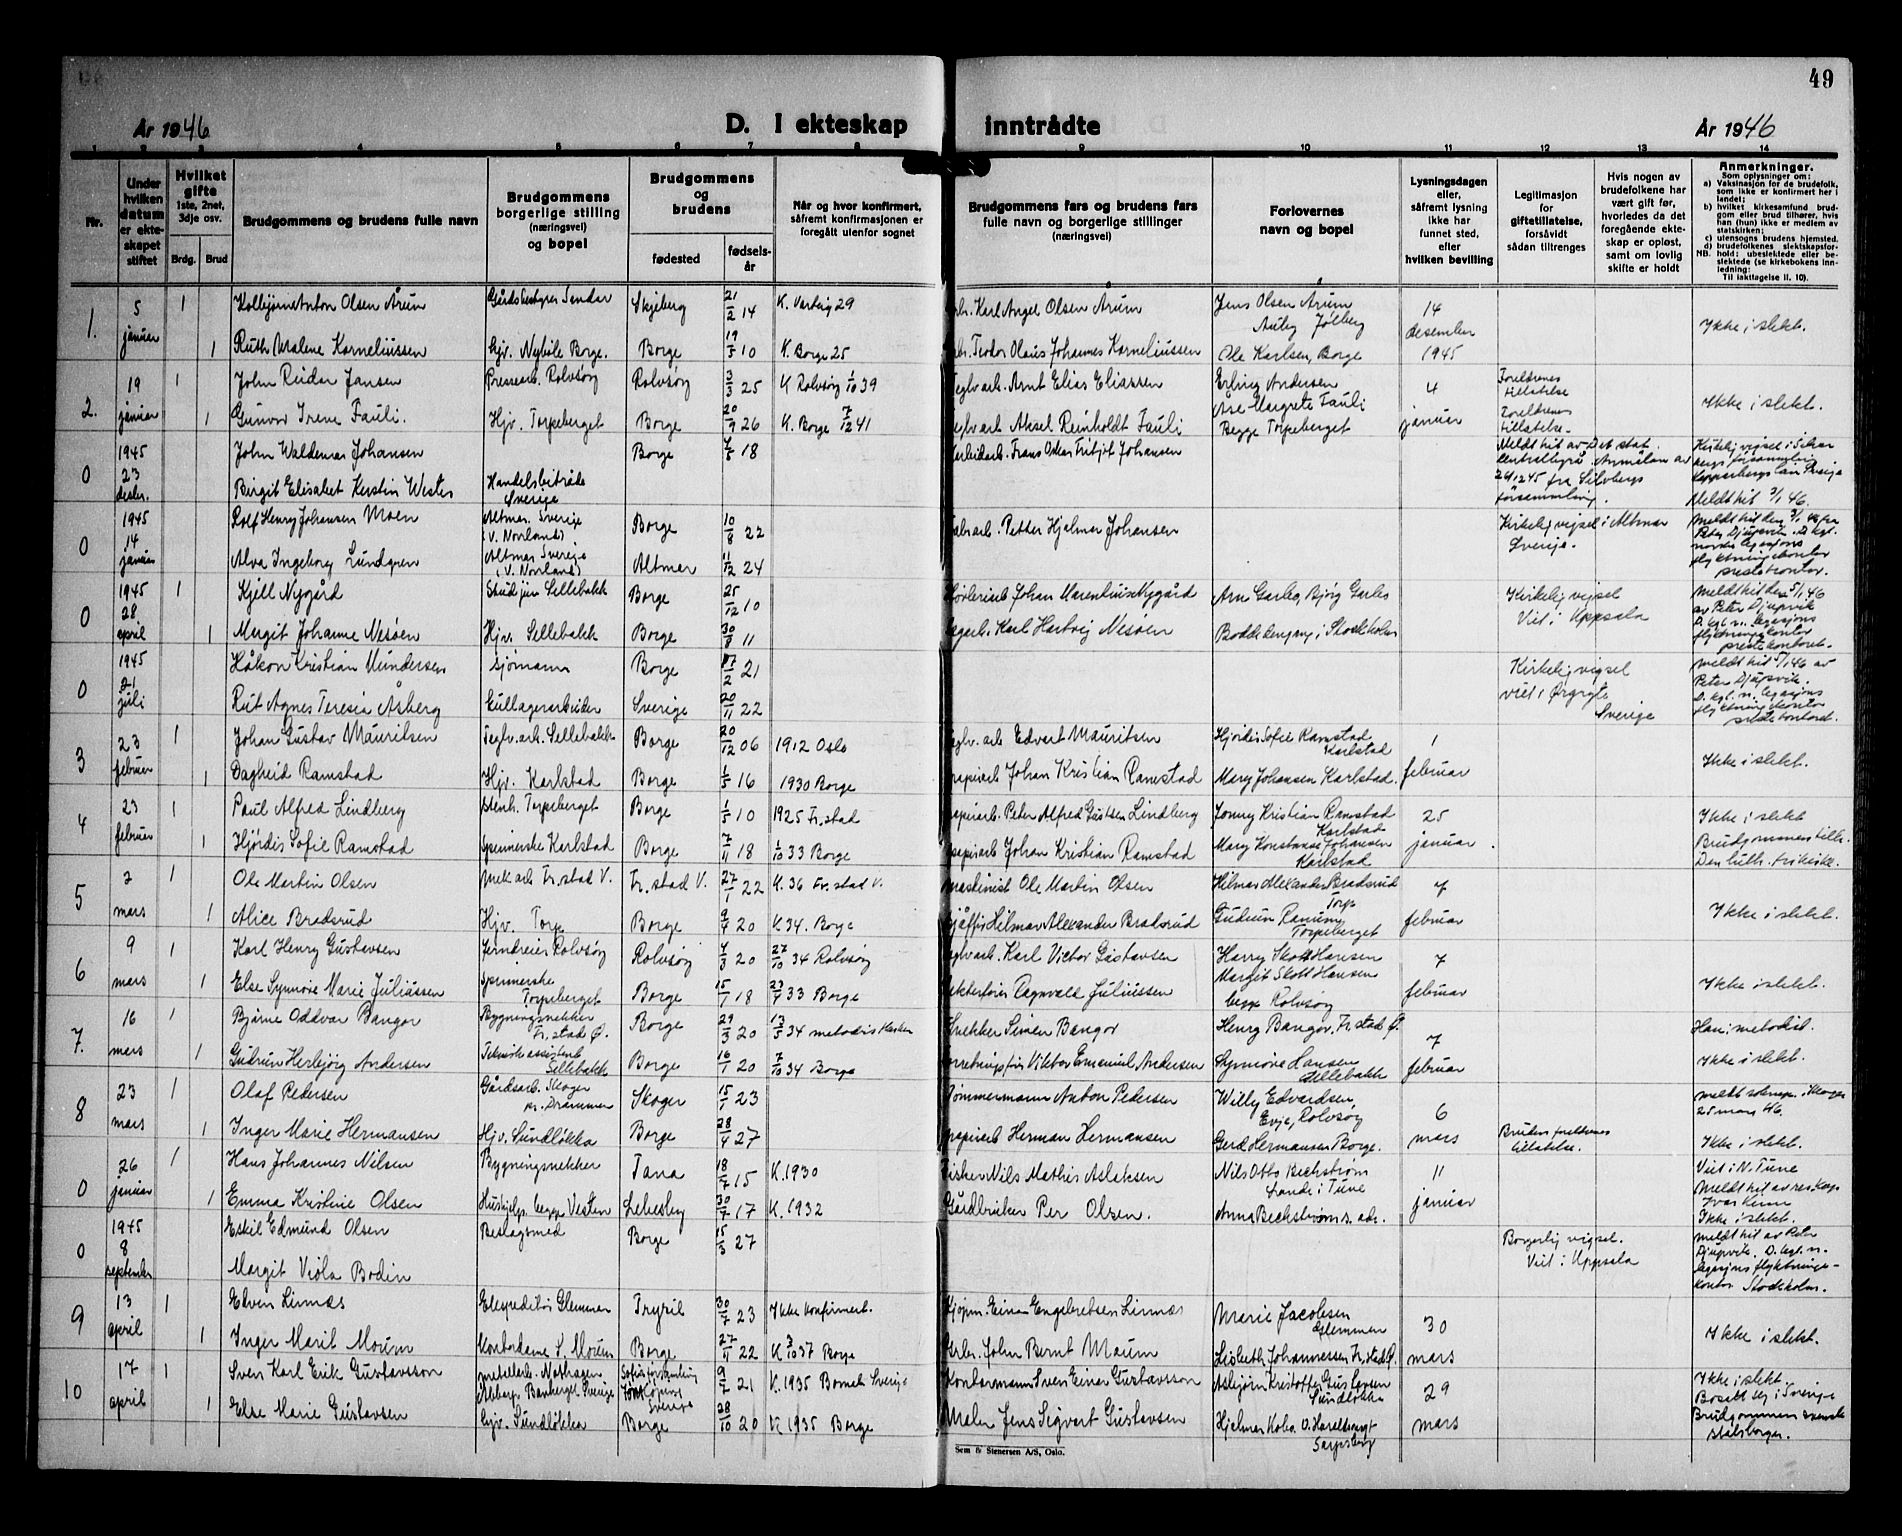 49
År 1946
D. I ekteskap inntrådte
År 1946
1 2 3 4 5 6 7 8 9 10 11 12 13 14
Nr.
Under hvilken datum er ekteskapet stiftet
Hvilket gifte 1ste, 2net, 3dje osv.
Brdg. Brud
Brudgommens og brudens fulle navn
Brudgommens borgerlige stilling (næringsvei) og bopel
Brudgommens og brudens
fødested
fødselsår
Når og hvor konfirmert, såfremt konfirmasjonen er foregått utenfor sognet
Brudgommens fars og brudens fars fulle navn og borgerlige stillinger (næringsvei)
Forlovernes navn og bopel
Lysningsdagen eller, såfremt lysning ikke har funnet sted, efter hvilken bevilling
Legitimasjon for giftetillatelse, forsåvidt sådan tiltrenges
Hvis nogen av brudefolkene har vært gift før, hvorledes da det foregående ekteskap er opløst, samt om lovlig skifte er holdt
Anmerkninger.
Som oplysninger om:
a) Vaksinasjon for de brudefolk, som ikke er konfirmert her i landet;
b) hvilket kirkesamfund brudgom eller brud tilhører, hvis han (hun) ikke er medlem av statskirken;
c) utensogns brudens hjemsted.
d) brudefolkenes slektskapsforhold: ubeslektede eller beslektede (se kirkebokens innledning:
NB.
Til iakttagelse II. 10).
1. 5 januar 1 Kolbjørn Anton Olsen Årum Skjeberg 21/2 14 K. Varteig 29 Karl Angel Olsen Årum Jens Olsen Årum 14 desember 1945 Ikke i slekt.
1 Ruth Malene Korneliussen Hjv. Nybule Borge. Borge 19/5 10 K. Borge 25 Teodor Olaus Johannes Korneliussen Ole Karlsen, Borge
2. 19 januar 1 John Reidar Jansen Pressearb. Rolvsøy Rolvsøy 3/3 25 K Rolvsøy 1/10 39 Teglv.arb. Arnt Elias Eliassen Erling Andersen 4 januar Foreldrenes tillatelse Ikke i slekt.
1 Gunvor Irene Fauli. Hjv. Torpeberget Borge 20/9 26 K. Borge 7/12 41 Teglv.arb. Aksel Reinholdt Fauli Åse Margrete Fauli Begge Torpeberget Foreldrenes tillatelse.
0 1945 23 desbr. John Waldemar Johansen Borge 4/5 18 Frans Oskar Fritjof Johansen Meldt hit av Det stat. sentralbyrå
Birgit Elisabet Kerstin Wester Handelsbiträde Sverige Meldt hit 3/1 46.
0 1945 14 januar Rolf Henry Johansen Moen Altmar. Sverige (V. Norrland) Borge 10/8 22 Petter Hjelmar Johansen Kirkelig vigsel i Altmar Sverige.
Alva Ingeborg Lundgren Altmar Sverige (V. Norrland) Altmar 11/12 24
0 1945 28 april 1 Kjell Nygård Sellebakk Borge 25/12 10 Johan Marentius Nygård Arn Garles, Bjørg Garles Kirkelig vigsel Viet i Uppsala meldt hit den 5/1 46 av Peter Djupvik D. kgl. n. legasjons flyktningskontor prestekontoret.
1 Margit Johanne Nesøen Hjv. Sellebakk Borge 30/8 11 Karl Hartvig Nesøen i Stockholm
0 1945 21 juli Håkon Kristian Mundersen sjømann Borge 17/2 21 Kirkelig vigsel viet i Ørgryte Sverige meldt hit 5/1 46 av Peter Djupvik. D. kgl. n. legasjons flyktningskontor prestekontoret.
Rut Agnes Teresia Åsberg Kullagerarbeider Sverige 20/11 22
3 23 februar 1 Johan Gustav Mauritsen Teglv.ark. Sellebakk Borge 20/12 06 1912 Oslo Teglv. arb Edvart Mauritsen Hjørdis Sofie Ramstad Karlstad 1 februar Ikke i slekt.
1 Dagheid Ramstad Hjv. Karlstad Borge 1/5 16 1930 Borge papirarb. Johan Kristian Ramstad Mary Johansen Karlstad.
4 23 februar 1 Paul Alfred Lindberg stenh. Torpeberget Borge 1/5 10 1925 Fr.stad papirarb. Peter Alfred Lindberg Jonny Kristian Ramstad Karlstad 25 januar Ikke i slekt
1 Hjördis Sofie Ramstad Spinnerske Karlstad Borge 7/11 18 1/10 33 Borge papirarb Johan Kristian Ramstad Mary Konstanse Johansen Karlstad Brudgommen tilh. Den luth. frikirke.
5 2 mars 1 Ole Martin Olsen Mek arb Fr. stad V. Fr. stad V. 27/1 22 K. 36 Fr. stad V. maskinist Ole Martin Olsen Hilmar Alexander Bradsrud Torp 7 februar Ikke i slekt.
1 Alice Bradsrud Hjv. Torp Borge 9/7 20 K. 34. Borge Hilmar Alexander Bradsrud Gudrun Ranum Torpeberget
6 9 mars 1 Karl Henry Gustavsen Jerndreier Rolvsøy Rolvsøy 4/3 20 27/10 34 Rolvsøy Teglv.arb. Karl Victor Gustavsen Harry Skott Hansen 7 februar Ikke i slekt.
1 Else Synnøve Marie Juliussen Spinnerske Torpeberget Borge 15/1 18 23/7 33 Borge Ragnvald Juliussen Margit Skott Hansen begge Rolvsøy
7. 16 mars 1 Bjarne Oddvar Bangor Bygningssnekker Fr. stad Ø. Borge 29/3 20 13/5 34 metodistkirken Snekker Simen Bangor Henry Bangor, Fr. stad Ø. 7 februar Han: metodist.
1 Gudrun Herbjørg Andersen Sellebakk Borge 16/1 20 7/10 34 Borge Viktor Emanuel Andersen Synnøve Hansen Sellebakk Ikke i slekt.
8 23 mars 1 Olaf Pedersen Gårdsarb. Skoger pr. Drammen Skoger 15/1 23 Tømmermann Anton Pedersen Willy Edvardsen, Evje, Rolvsøy 6 mars meldt soknepr. i Skoger 25 mars 46.
1 Inger Marie Hermansen Hjv. Sundløkka Borge 28/4 27 papirarb Herman Hermansen Gerd Hermansen Borge. Brudens foreldrenes tillatelse. Ikke i slekt.
0 26 januar 1 Hans Johannes Nilsen Bygningssnekker Tana 18/7 15 K. 1930 Fisker Nils Mathis Aslaksen Nils Otto Beckstrøm Tune 11 januar Viet i N. Tune
1 Emma Kristine Olsen Hushjelp. begge Vesten Lebesby 30/7 17 K. 1932 Gårdbruker Per Olsen. Anna Beckstrøm s. adr. Ikke i slekt.
0 1945 8 september Eskil Edmund Olsen Beslagsmed Borge 15/3 27 Borgerlig vigsel. Viet i Uppsala meldt hit av Peter Djupvik. D. kgl. n. legasjons flyktningekontor Stockholm.
Margit Viola Bodin
9 13 april 1 Elven Linnæs Glemmen Trysil 30/7 23 Ikke konfirmert. Kjøpm. Einar Engebretsen Linnæs Marie Jacobsen Glemmen 30 mars Ikke i slekt.
1 Inger Marit Moum Kontordame S. Moum Borge 27/11 22 K 3/10 37 Borge John Bernt Moum Lisbeth Johannessen Fr. stad Ø.
10 17 april 1 Sven Karl Erik Gustavsson Sverige 9/7 21 K. 1935 Sverige Kontormann Sven Einar Gustavsson Asbjørn Kristoffer Gustavsen Sundløkka 29 mars Ikke i slekt. Bosatt seg i Sverige
1 Else Marie Gustavsen Hjv. Sundløkka Borge 28/10 20 K 1935 Borge Maler Jens Sigvart Gustavsen Hjelmar Sarpsborg Brudgommen svensk statsborger.
Sem & Stenersen A/S, Oslo.